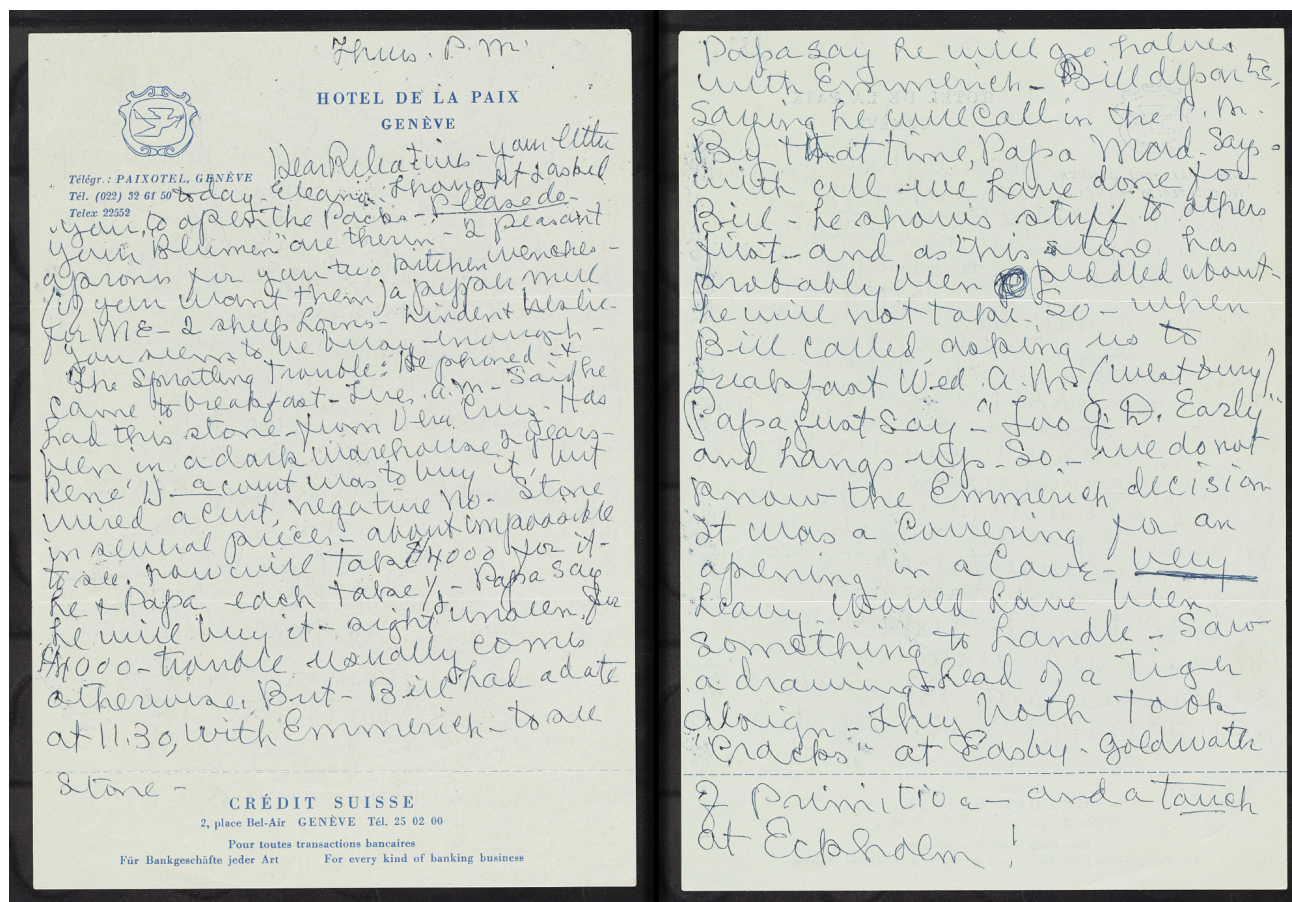 Thurs. P.M.
HOTEL DE LA PAIX
GENÈVE
Dear Relatives - your letter
Télégr.: PAIXOTEL, GENÈVE
Tél. (022) 32 61 50
Telex 22552
today. Eleanor. Thought I asked
you to open the Packs - Please do -
your "Blumen" are therein - 2 peasant
aprons for you two kitchen wenches -
(if you want them) a pepper mill
for ME - 2 sheep horns -
you seem to be busy enough -
The Spratling Trouble: He phoned &
came to breakfast - Tues. a.m. - Said he
had this stone - from Vera Cruz. Has
been in a dark warehouse 2 years -
René D - a count was to buy it, but
wired a curt, negative No. Stone
in several pieces - about impossible
to see, now will take $4000 for it -
he & Papa each take ½ - Papa say
he will buy it - sight unseen, for
$4000 - trouble usually comes
otherwise. But - Bill had a date
at 11.30, with Emmerich - to see
Stone -
CRÉDIT SUISSE
2, place Bel-Air GENÈVE Tél. 25 02 00
Pour toutes transactions bancaires
Für Bankgeschäfte jeder Art For every kind of banking business
Papa say he will go halves
with Emmerich - Bill departs,
saying he will call in the P.M.
By that time, Papa Mad. Says
with all we have done for
Bill - he shows stuff to others
first - and as this stone has
probably been peddled about -
he will not take. So - when
Bill called, asking us to
breakfast Wed. A.M. (Westbury)
Papa just say - "Too G.D. Early"
and hangs up. So - we do not
know the Emmerich decision
It was a covering for an
opening in a Cave - very
heavy, would have been
something to handle - Saw
a drawing, head of a tiger
design - They both took
"Cracks" at Easby - Goldwater
of Primitive - and a touch
at Eckholm!